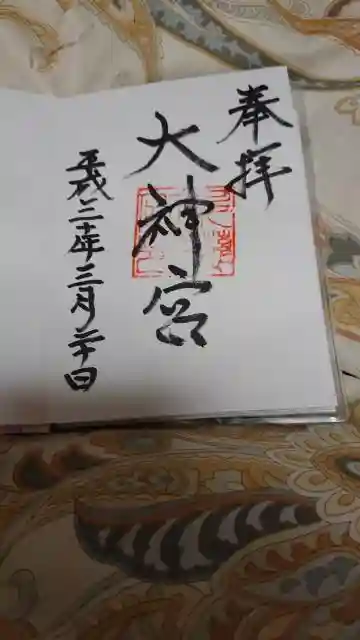 奉拝
大神宮
平成三十年三月二十日